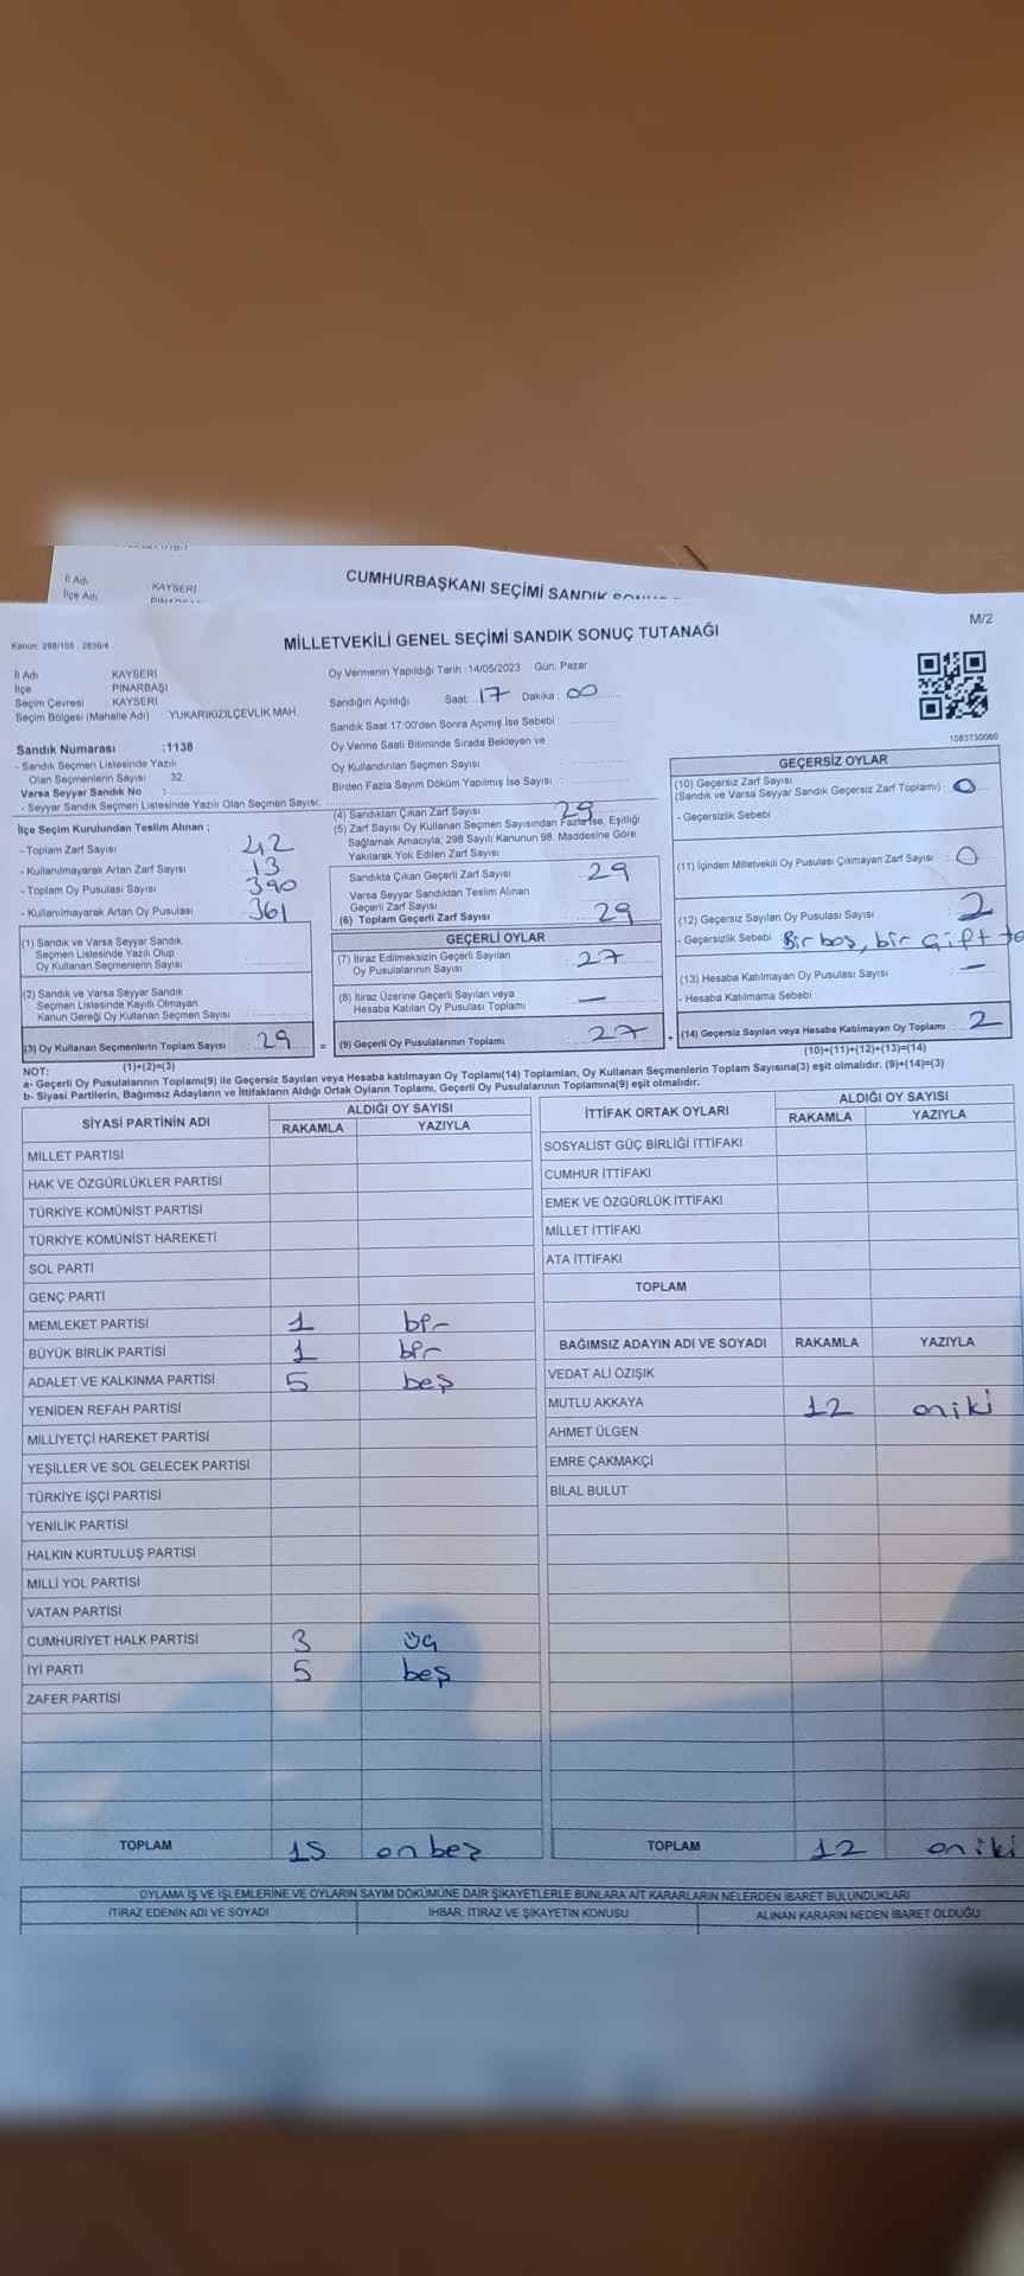 İl Adı KAYSERİ
İlçe Adı
CUMHURBAŞKANI SEÇİMİ SANDIK
M/2
MİLLETVEKİLİ GENEL SEÇİMİ SANDIK SONUÇ TUTANAĞI
İl Adı : KAYSERİ
İlçe : PINARBAŞI
Seçim Çevresi : KAYSERİ
Seçim Bölgesi (Mahalle Adı) YUKARIKIZILÇEVLİK MAH.
Oy Vermenin Yapıldığı Tarih :14/05/2023 Gün: Pazar
Sandığın Açıldığı Saat: 17 Dakika : 00
Sandık Saat 17:00'den Sonra Açımış İse Sebebi :
Oy Verme Saati Bitiminde Sırada Bekleyen ve
Oy Kullandırılan Seçmen Sayısı :
Birden Fazla Sayım Döküm Yapılmış İse Sayısı :
1083730060
Sandık Numarası :1138
- Sandık Seçmen Listesinde Yazılı
Olan Seçmenlerin Sayısı 32
Varsa Seyyar Sandık No :
- Seyyar Sandık Seçmen Listesinde Yazılı Olan Seçmen Sayısı:
İlçe Seçim Kurulundan Teslim Alınan ;
- Toplam Zarf Sayısı : 42
- Kullanılmayarak Artan Zarf Sayısı : 13
- Toplam Oy Pusulası Sayısı : 390
- Kullanılmayarak Artan Oy Pusulası : 361
(1) Sandık ve Varsa Seyyar Sandık
Seçmen Listesinde Yazılı Olup
Oy Kullanan Seçmenlerin Sayısı :
(2) Sandık ve Varsa Seyyar Sandık
Seçmen Listesinde Kayıtlı Olmayan
Kanun Gereği Oy Kullanan Seçmen Sayısı :
(3) Oy Kullanan Seçmenlerin Toplam Sayısı : 29
(1)+(2)=(3)
(4) Sandıktan Çıkan Zarf Sayısı : 29
(5) Zarf Sayısı Oy Kullanan Seçmen Sayısından Fazla İse, Eşitliği
Sağlamak Amacıyla, 298 Sayılı Kanunun 98. Maddesine Göre
Yakılarak Yok Edilen Zarf Sayısı
Sandıkta Çıkan Geçerli Zarf Sayısı : 29
Varsa Seyyar Sandıktan Teslim Alınan
Geçerli Zarf Sayısı
(6) Toplam Geçerli Zarf Sayısı : 29
GEÇERLİ OYLAR
(7) İtiraz Edilmeksizin Geçerli Sayılan
Oy Pusulalarının Sayısı : 27
(8) İtiraz Üzerine Geçerli Sayılan veya
Hesaba Katılan Oy Pusulası Toplamı : —
= (9) Geçerli Oy Pusulalarının Toplamı : 27
GEÇERSİZ OYLAR
(10) Geçersiz Zarf Sayısı
(Sandık ve Varsa Seyyar Sandık Geçersiz Zarf Toplamı) : 0
- Geçersizlik Sebebi
(11) İçinden Milletvekili Oy Pusulası Çıkmayan Zarf Sayısı : 0
(12) Geçersiz Sayılan Oy Pusulası Sayısı : 2
- Geçersizlik Sebebi : Bir boş, bir çift
(13) Hesaba Katılmayan Oy Pusulası Sayısı : —
- Hesaba Katılmama Sebebi
+ (14) Geçersiz Sayılan veya Hesaba Katılmayan Oy Toplamı : 2
(10)+(11)+(12)+(13)=(14)
NOT:
a- Geçerli Oy Pusulalarının Toplamı(9) ile Geçersiz Sayılan veya Hesaba katılmayan Oy Toplamı(14) Toplamları, Oy Kullanan Seçmenlerin Toplam Sayısına(3) eşit olmalıdır. (9)+(14)=(3)
b- Siyasi Partilerin, Bağımsız Adayların ve İttifakların Aldığı Ortak Oyların Toplamı, Geçerli Oy Pusulalarının Toplamına(9) eşit olmalıdır.
SİYASİ PARTİNİN ADI ALDIĞI OY SAYISI
RAKAMLA YAZIYLA
MİLLET PARTİSİ
HAK VE ÖZGÜRLÜKLER PARTİSİ
TÜRKİYE KOMÜNİST PARTİSİ
TÜRKİYE KOMÜNİST HAREKETİ
SOL PARTİ
GENÇ PARTİ
MEMLEKET PARTİSİ 1 bir
BÜYÜK BİRLİK PARTİSİ 1 bir
ADALET VE KALKINMA PARTİSİ 5 beş
YENİDEN REFAH PARTİSİ
MİLLİYETÇİ HAREKET PARTİSİ
YEŞİLLER VE SOL GELECEK PARTİSİ
TÜRKİYE İŞÇİ PARTİSİ
YENİLİK PARTİSİ
HALKIN KURTULUŞ PARTİSİ
MİLLİ YOL PARTİSİ
VATAN PARTİSİ
CUMHURİYET HALK PARTİSİ 3 üç
İYİ PARTİ 5 beş
ZAFER PARTİSİ
TOPLAM 15 onbeş
İTTİFAK ORTAK OYLARI ALDIĞI OY SAYISI
RAKAMLA YAZIYLA
SOSYALİST GÜÇ BİRLİĞİ İTTİFAKI
CUMHUR İTTİFAKI
EMEK VE ÖZGÜRLÜK İTTİFAKI
MİLLET İTTİFAKI
ATA İTTİFAKI
TOPLAM
BAĞIMSIZ ADAYIN ADI VE SOYADI RAKAMLA YAZIYLA
VEDAT ALİ ÖZIŞIK
MUTLU AKKAYA 12 oniki
AHMET ÜLGEN
EMRE ÇAKMAKÇİ
BİLAL BULUT
TOPLAM 12 oniki
OYLAMA İŞ VE İŞLEMLERİNE VE OYLARIN SAYIM DÖKÜMÜNE DAİR ŞİKAYETLERLE BUNLARA AİT KARARLARIN NELERDEN İBARET BULUNDUKLARI
İTİRAZ EDENİN ADI VE SOYADI İHBAR, İTİRAZ VE ŞİKAYETİN KONUSU ALINAN KARARIN NEDEN İBARET OLDUĞU